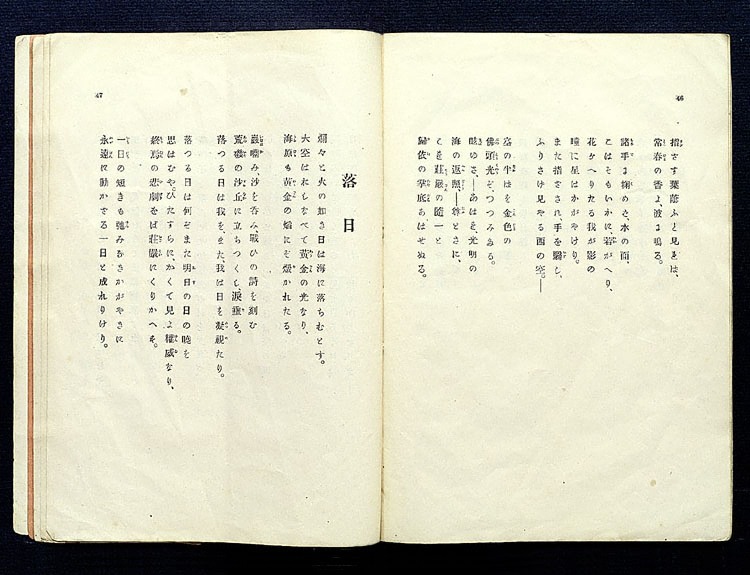 46
指さす葉蔭ふと見れば、
常春の香よ、波は鳴る。
諸手に掬めき、水の面、
こはそもいかに、若がへり、
花をへりたる我が影の
瞳に星はかがやけり。
また指さされ、手を翳し、
ふりさけ見やる西の空。―
空の半ばを金色の
佛頭光ぞつつみゐる。
眩ゆさ、―あはれ光明の
海の返照、―尊とさに、
こを莊嚴の隨一と
歸依の掌底あはせぬる。
落日
爛々と火の如き日は海に落ちむとす。
大空はおしなべて黄金の光なり、
海原も黄金の焔にぞ燬かれたる。
巖嚙み、沙を呑み、戰ひの詩を刻む
荒磯の沙丘に立ちつくし、涙垂る。
落つる日は我を、また、我は日を凝視たり。
落つる日は何ぞまた明日の日の曉を
思はむや、ひたすらに、かくて見よ權威なり、
終焉の悲劇をば莊嚴にくりかへす。
一日の短きも強みある かがやきに
永遠に動かざる一日と成れりけり。
47